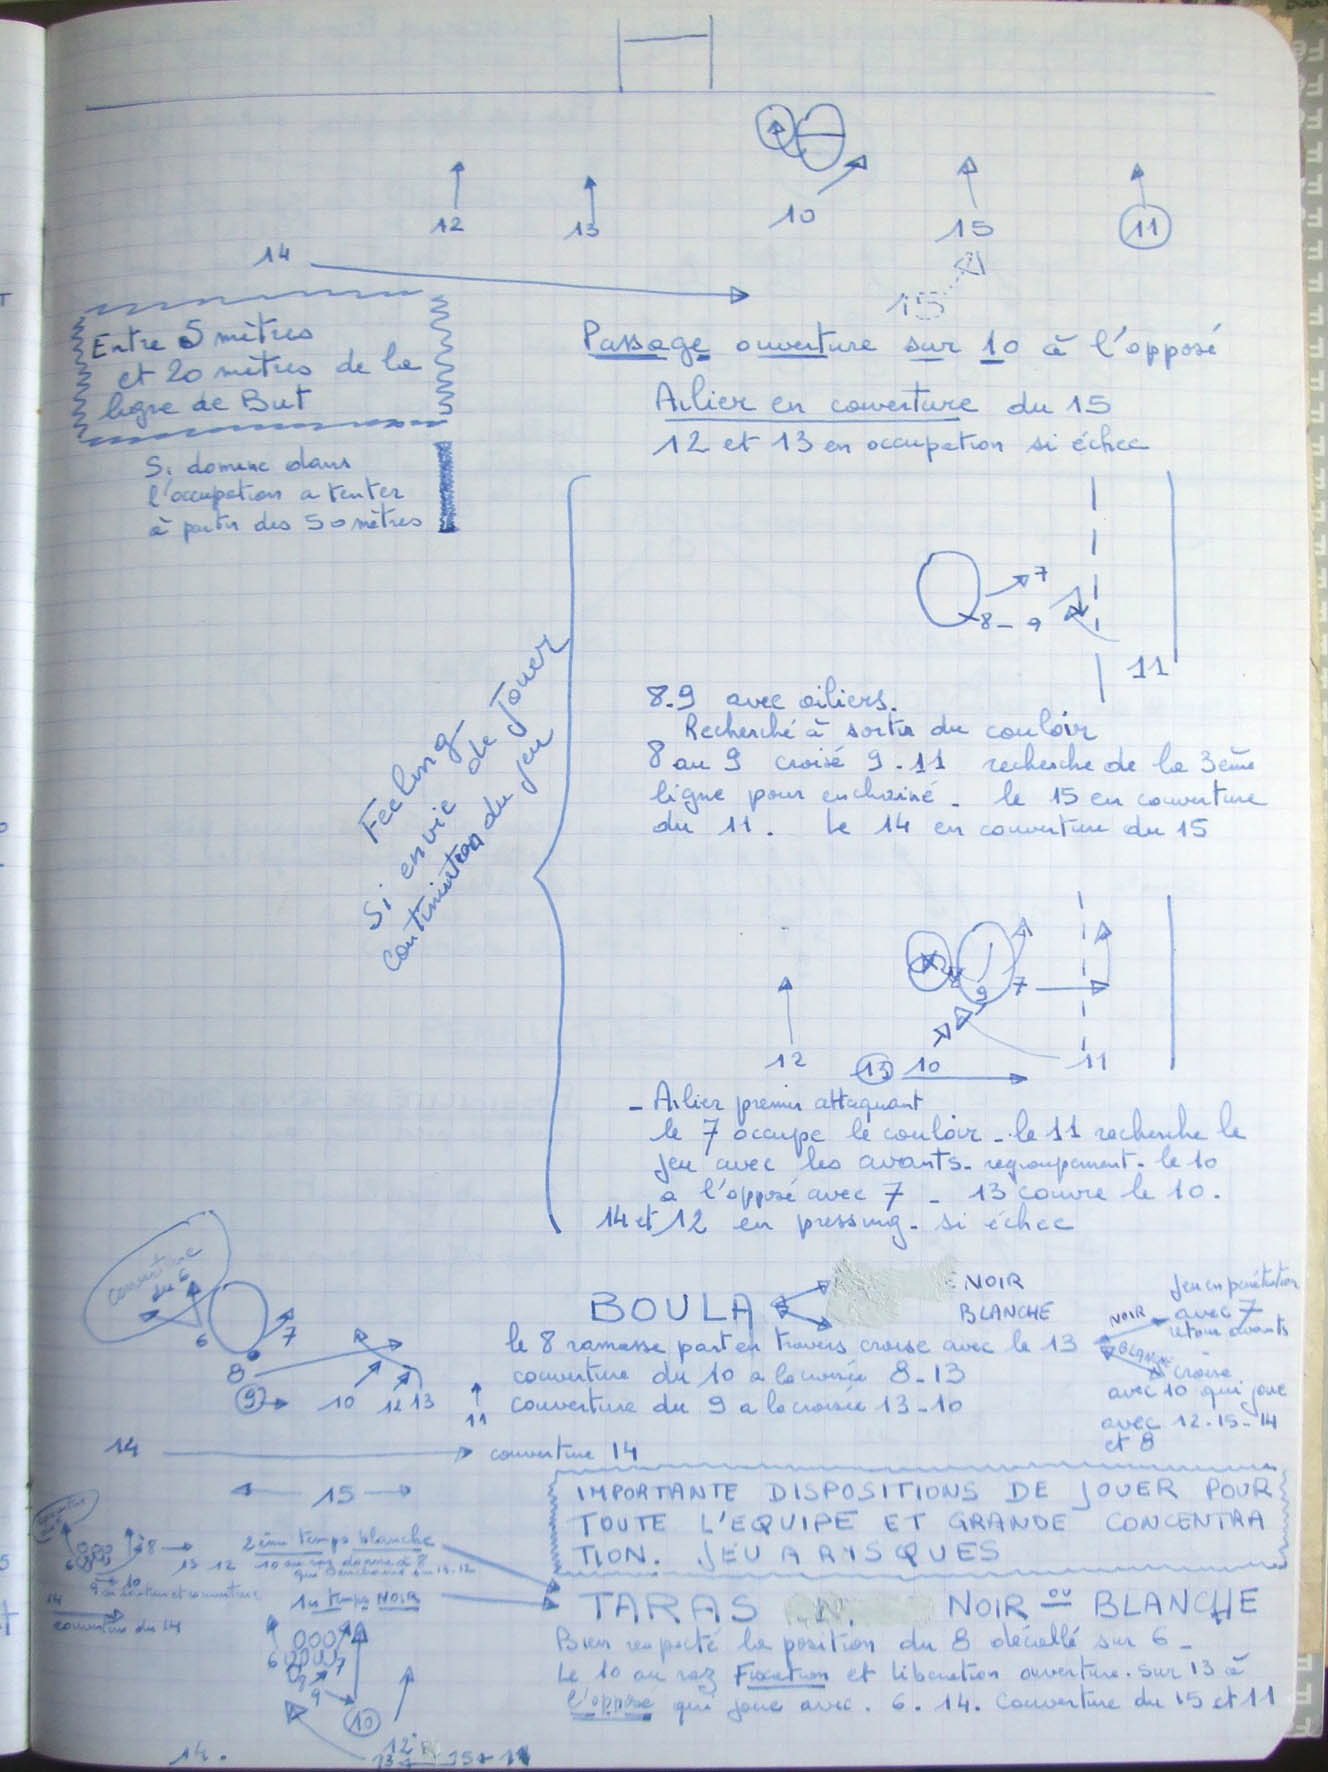 12
13
10
15
11
14
15
Entre 5 mètres
et 20 mètres de la
ligne de But
Si domine dans
l'occupation a tenter
à partir des 50 mètres
Passage ouverture sur 10 à l'opposé
Ailier en couverture du 15
12 et 13 en occupation si échec
7
8 - 9
11
Feeling
Si envie de Jouer
continuation du jeu
8.9 avec ailiers.
Recherché à sortir du couloir
8 au 9 croisé 9.11 recherche de la 3ème
ligne pour enchainé - le 15 en couverture
du 11. Le 14 en couverture du 15
8
9
7
12
13
10
11
- Ailier premier attaquant
le 7 occupe le couloir - le 11 recherche le
jeu avec les avants - regroupement - le 10
a l'opposé avec 7 - 13 couvre le 10.
14 et 12 en pressing - si échec
couverture
du 6
6
7
8
9
10
12
13
11
BOULA
NOIR
BLANCHE
le 8 ramasse part en travers croise avec le 13
couverture du 10 a la croisée 8-13
couverture du 9 a la croisée 13-10
NOIR
Jeu en pénétration
avec 7
retour avants
BLANCHE
croise
avec 10 qui joue
avec 12-15-14
et 8
14
couverture 14
15
IMPORTANTE DISPOSITIONS DE JOUER POUR
TOUTE L'EQUIPE ET GRANDE CONCENTRA
TION. JEU A RISQUES
2ème temps blanche
10 au raz donne a 8
6
8
13 12
9
10
14
couverture du 14
1er temps NOIR
6
7
8
9
10
TARAS
NOIR ou BLANCHE
Bien respecté la position du 8 décallé sur 6 -
Le 10 au raz Fixation et libération ouverture sur 13 à
l'opposé qui joue avec 6. 14. Couverture du 15 et 11
14.
12
13
15